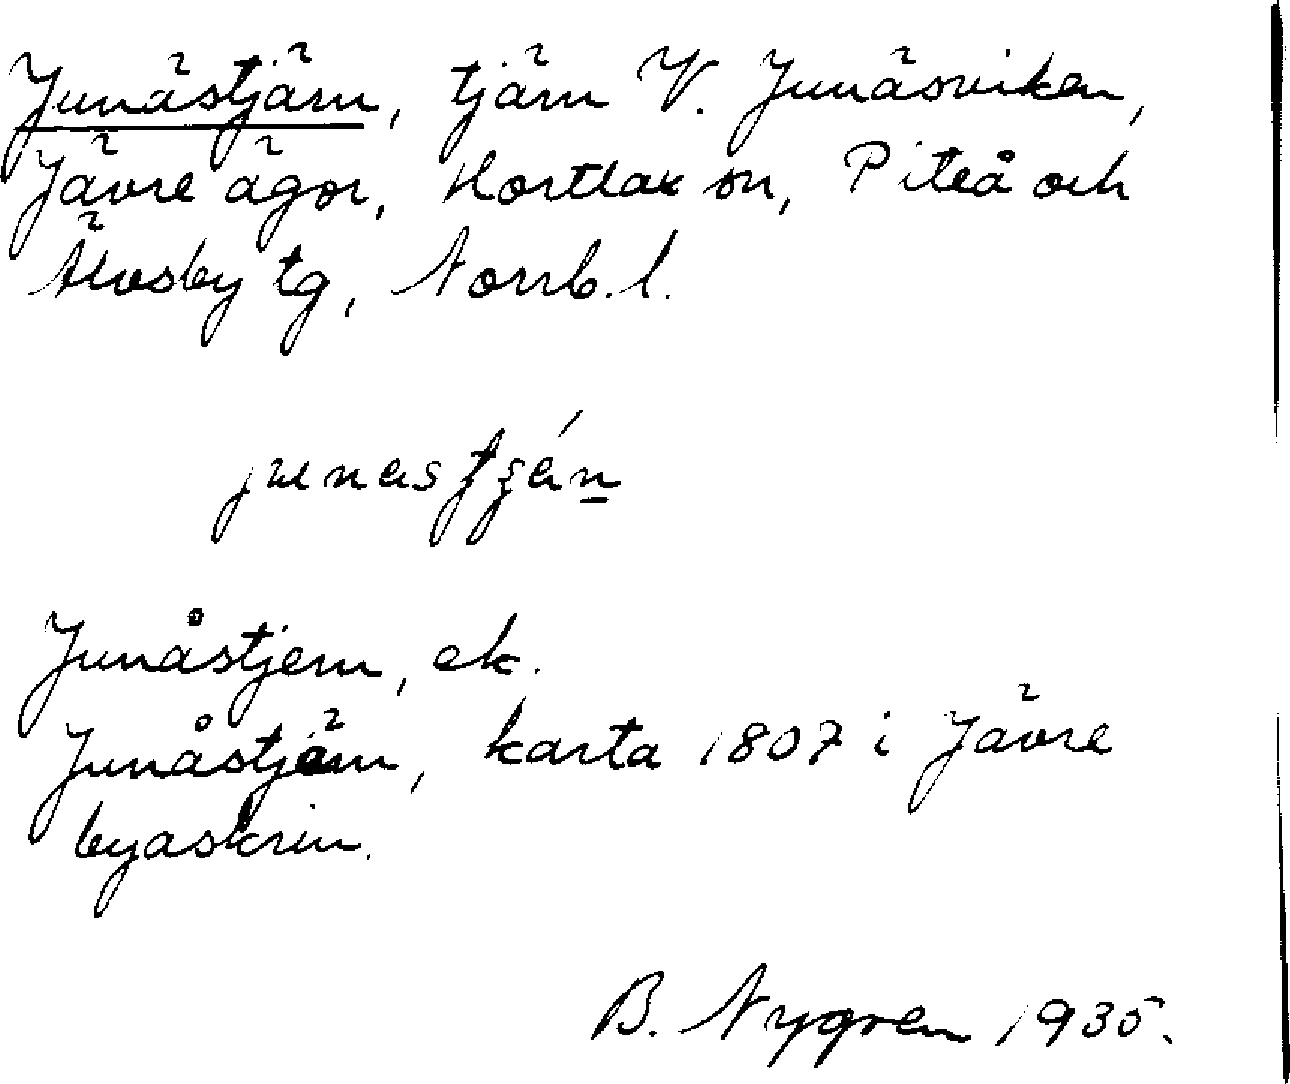 Junästjärn, tjärn V. Junäsviken,
Jävre ägor, Hortlax sn, Piteå och
Älvsby tg, Norrb. l.
Junåstjern, ek.
Junåstjärn, karta 1807 i Jävre
byaskrin.
B. Nygren 1935.